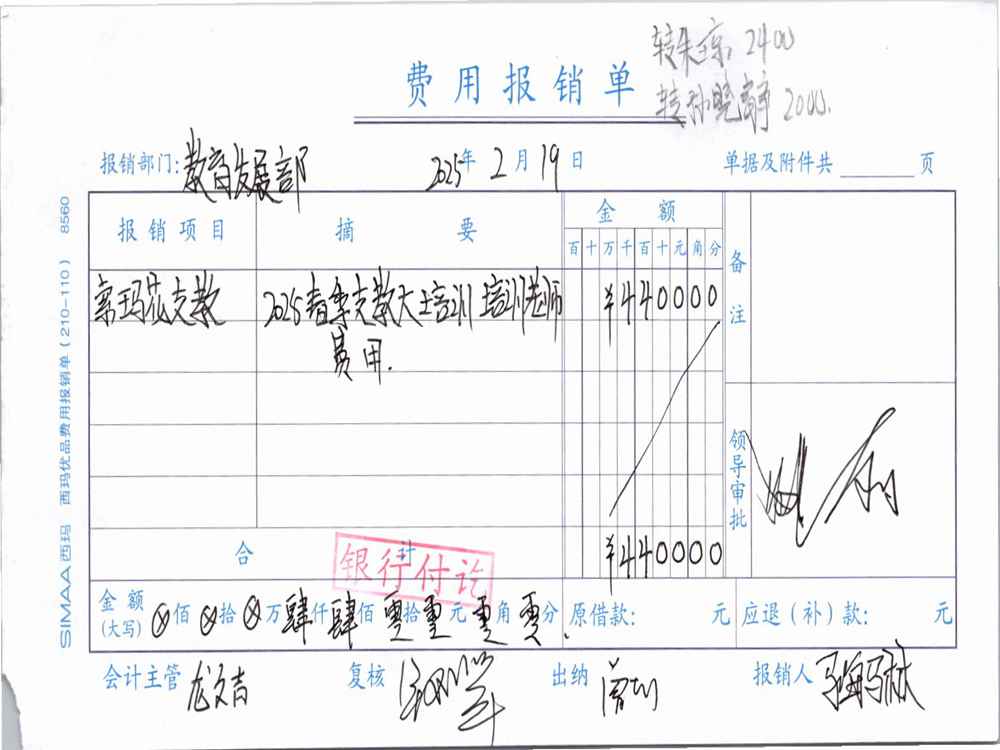 转朱琼 2400
转孙晓静 2000.
费用报销单
报销部门: 教育发展部 2025年 2月 19日 单据及附件共 页
报销项目 摘要 金额 备注
百 十 万 千 百 十 元 角 分
索玛花支教 2025春季支教大培训 培训老师 ¥440000
费用.
领导审批
合计 ¥440000
银行付讫
金额(大写) ⊗佰 ⊗拾 ⊗万 肆仟 肆佰 零拾 零元 零角 零分. 原借款: 元 应退(补)款: 元
会计主管 龙文吉 复核 出纳 报销人
SIMAA西玛 西玛优品费用报销单(210-110) 8560